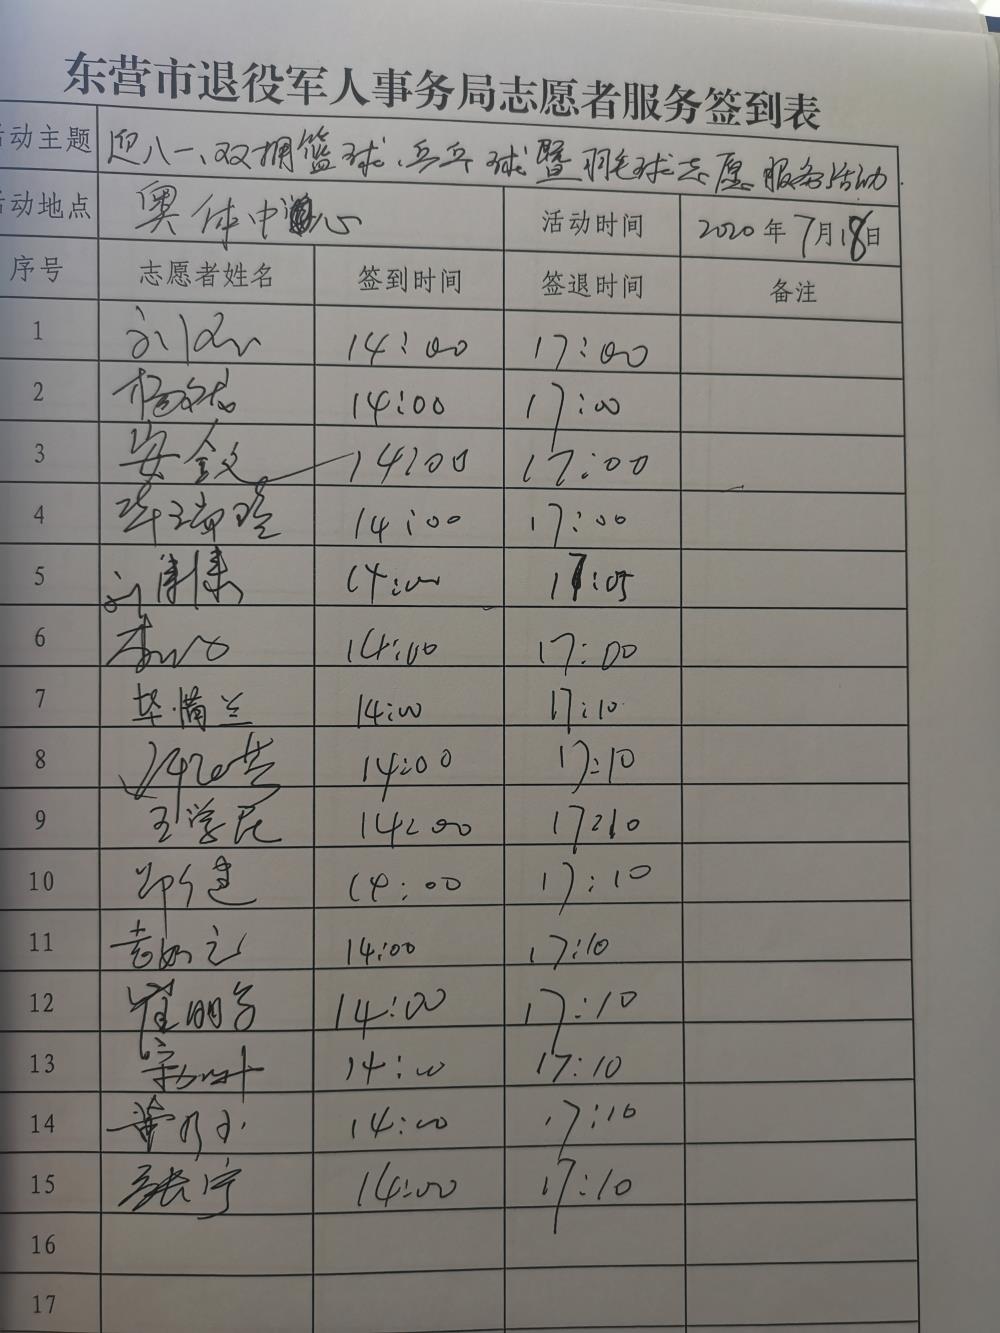 东营市退役军人事务局志愿者服务签到表
活动主题 迎八一、双拥篮球、乒乓球暨羽毛球志愿服务活动
动地点 奥体中心 活动时间 2020年7月18日
序号 志愿者姓名 签到时间 签退时间 备注
1 14:00 17:00
2 14:00 17:00
3 安全文 14:00 17:00
4 14:00 17:00
5 14:00 17:05
6 14:00 17:00
7 14:00 17:10
8 14:00 17:10
9 王学昆 14:00 17:10
10 14:00 17:10
11 14:00 17:10
12 崔明 14:00 17:10
13 14:00 17:10
14 14:00 17:10
15 张宁 14:00 17:10
16
17